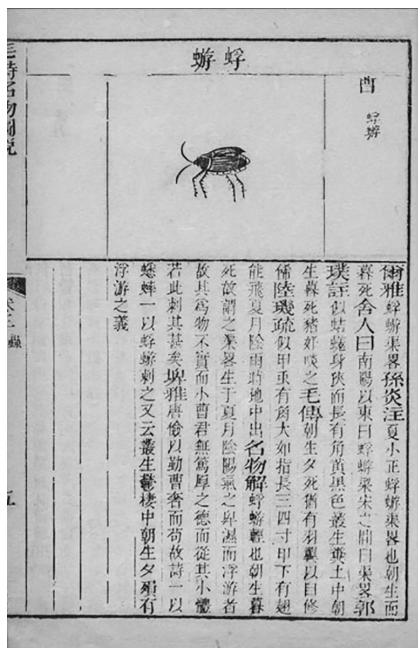 蜉蝣
曹
蜉蝣
爾雅蜉蝣渠畧孫炎注夏小正蜉蝣渠畧也朝生而
暮死舍人曰南陽以東曰蜉蝣梁宋之間曰渠畧郭
璞註似蛣蜣身狹而長有角黃黑色叢生糞土中朝
生暮死豬好啖之毛傳朝生夕死猶有羽翼以自修
飾陸璣疏似甲虫有角大如指長三四寸甲下有翅
能飛夏月陰雨時地中出名物解蜉蝣輕也朝生暮
死故謂之渠畧生于夏月陰陽氣之卑濕而浮游者
故其爲物不實而小曹君無篤厚之德而從其小體
若此刺其甚矣埤雅唐儉以勤曹奢而苟故詩一以
蟋蟀一以蜉蝣刺之又云叢生鬱棲中朝生夕殞有
浮游之義
毛詩名物圖說
五